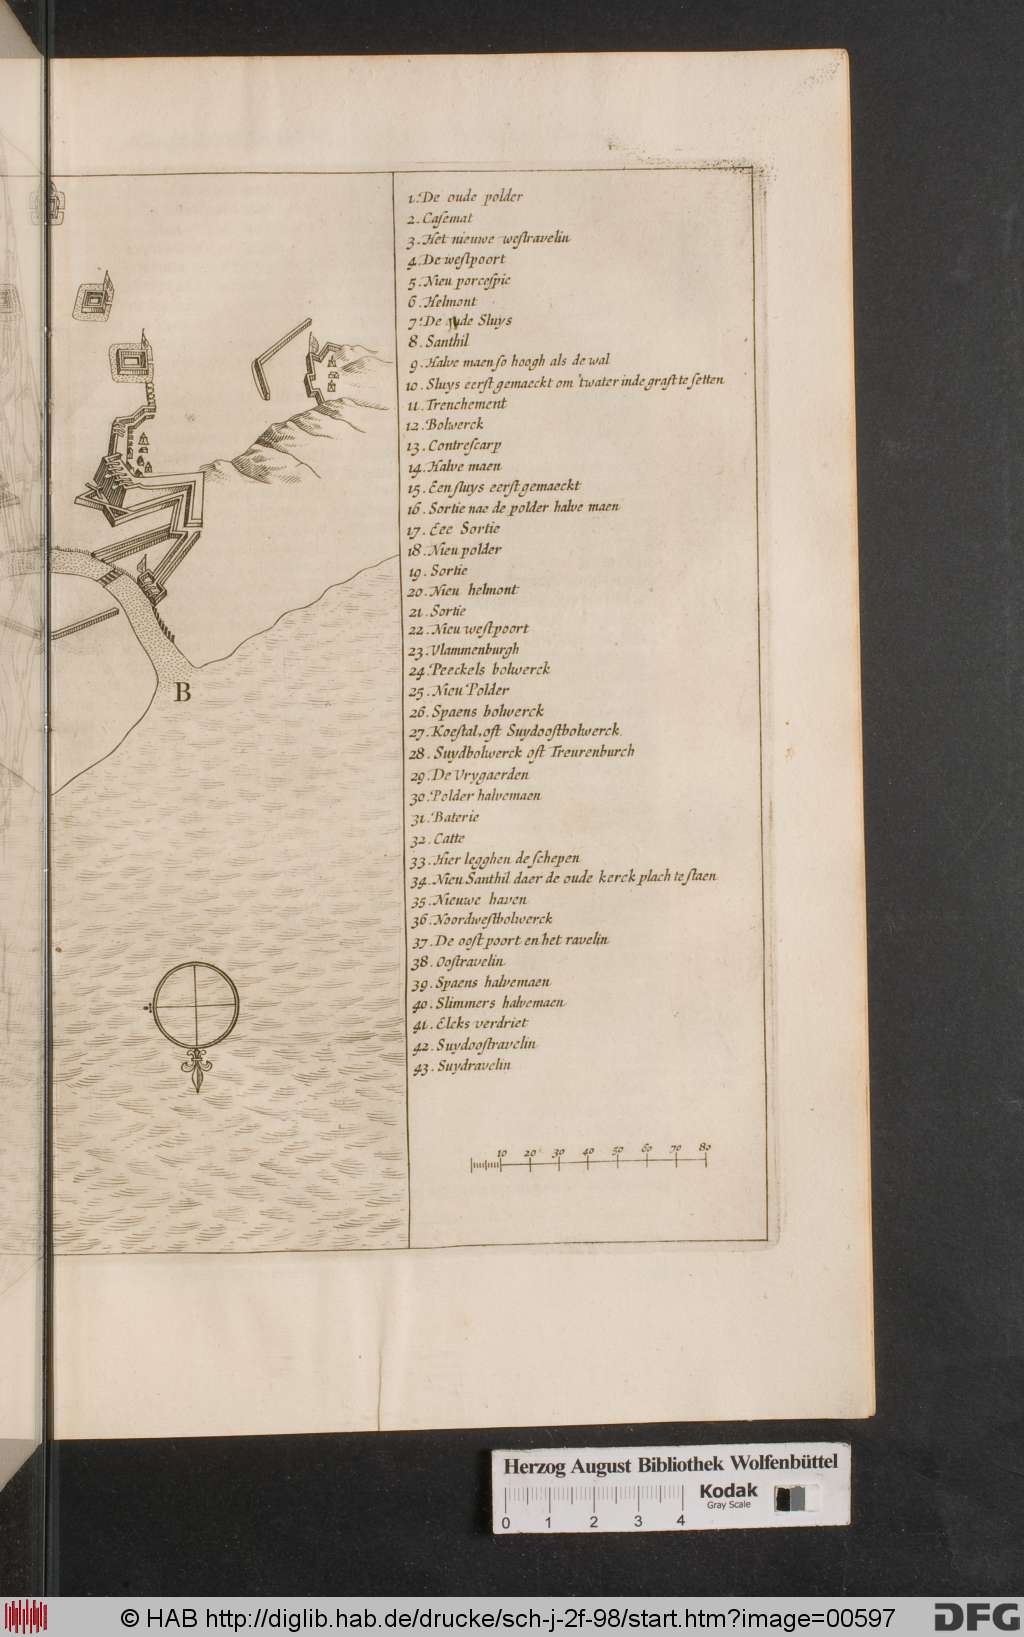 1. De oude polder
2. Casemat
3. Het nieuwe westravelin
4. De westpoort
5. Nieu porcespic
6. Helmont
7. De Sluys
8. Santhil
9. Halve maen so hoogh als de wal
10. Sluys eerst gemaeckt om 'twater inde graft te setten
11. Trenchement
12. Bolwerck
13. Contrescarp
14. Halve maen
15. Een sluys eerst gemaeckt
16. Sortie nae de polder halve maen
17. Eee Sortie
18. Nieu polder
19. Sortie
20. Nieu helmont
21. Sortie
22. Nieu westpoort
23. Vlammenburgh
24. Peeckels bolwerck
25. Nieu Polder
26. Spaens bolwerck
27. Koestal, oft Suydoostbolwerck
28. Suydbolwerck oft Treurenburch
29. De Vrygaerden
30. Polder halvemaen
31. Baterie
32. Catte
33. Hier legghen de schepen
34. Nieu Santhil daer de oude kerck plach te staen
35. Nieuwe haven
36. Noordwestbolwerck
37. De oost poort en het ravelin
38. Oostravelin
39. Spaens halvemaen
40. Slimmers halvemaen
41. Elcks verdriet
42. Suydoostravelin
43. Suydravelin
B
10 20 30 40 50 60 70 80
Herzog August Bibliothek Wolfenbüttel
Kodak
Gray Scale
0 1 2 3 4
© HAB http://diglib.hab.de/drucke/sch-j-2f-98/start.htm?image=00597
DFG